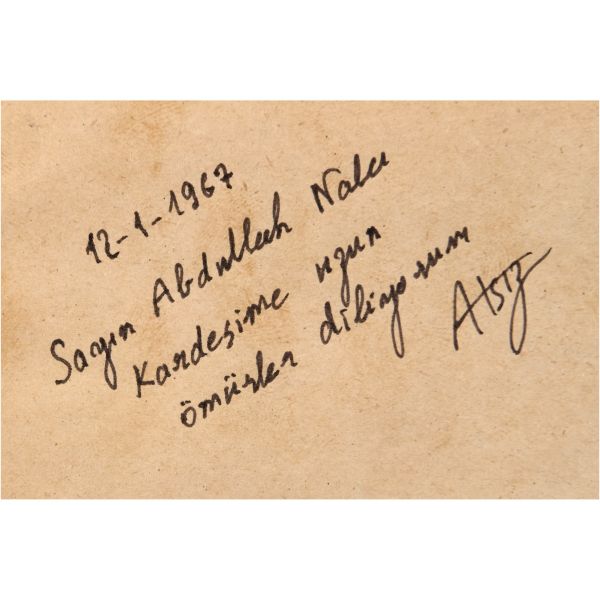 12-1-1967
Sayın Abdullah
Kardeşime uzun
ömürler diliyorum
Atsız